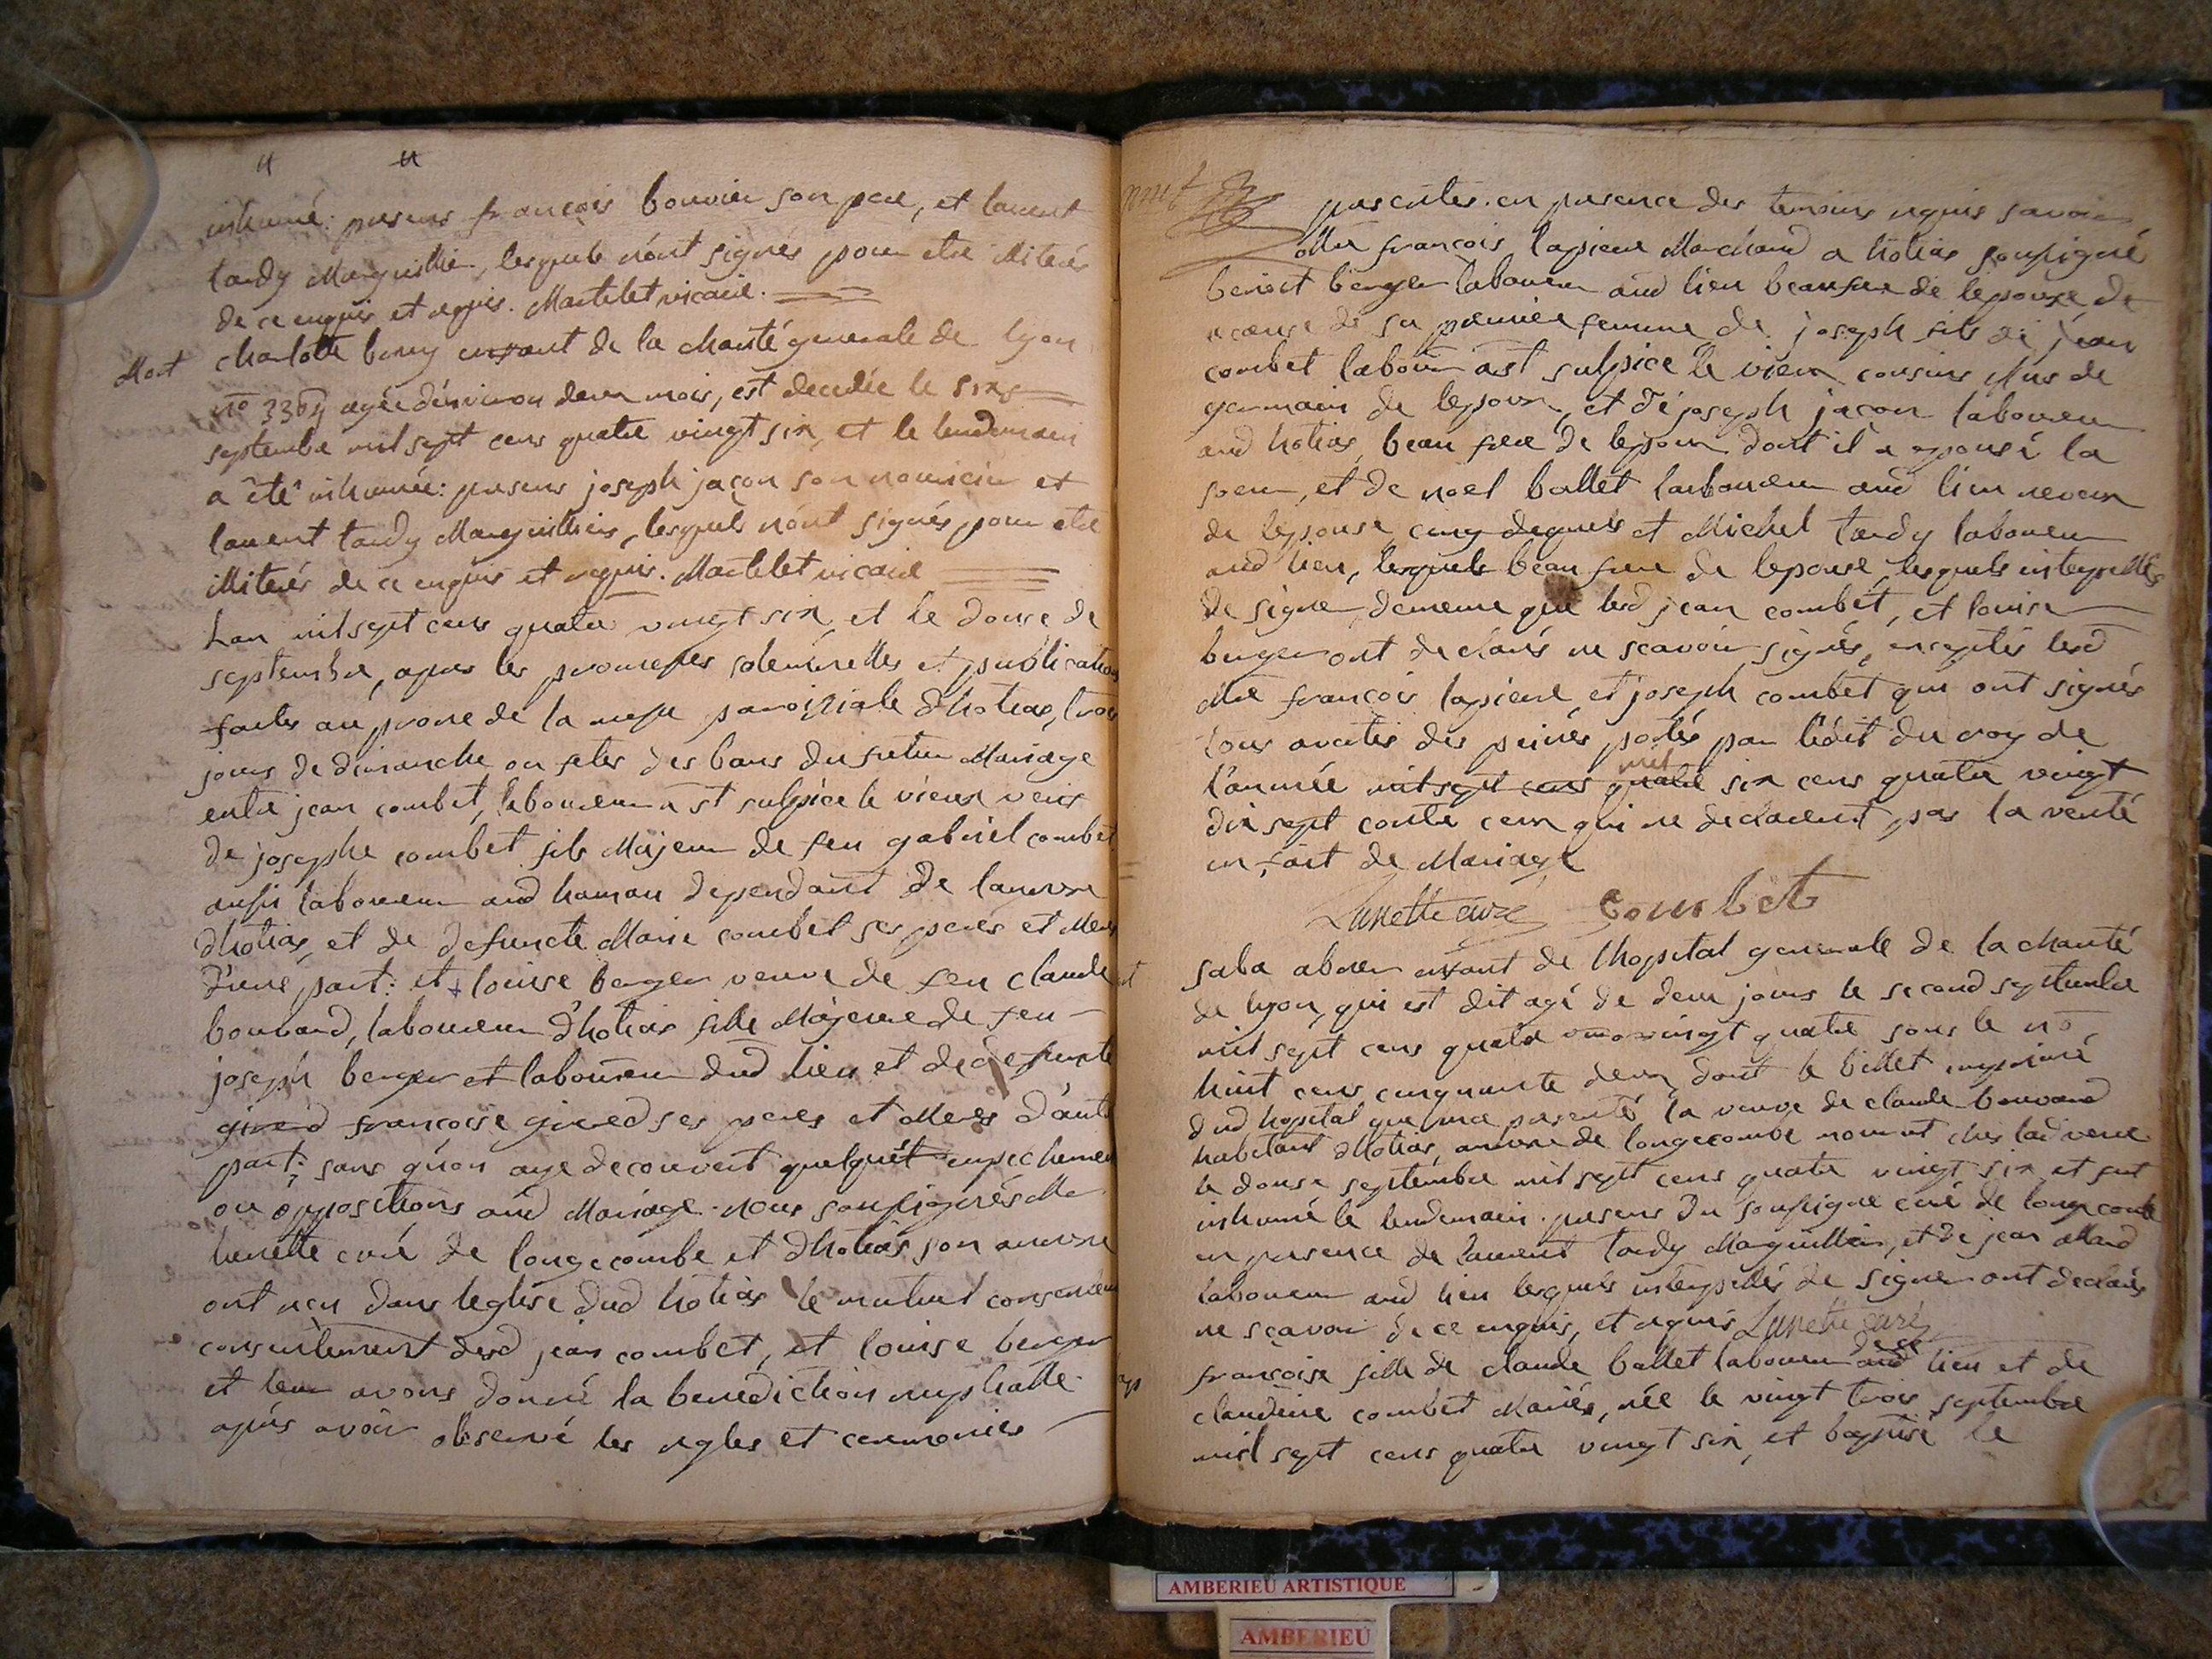 inhumé: presens françois bouvier son pere, et laurent
tardy Marguillier, lesquels n'ont signés pour etre illiterés
de ce enquis et requis. Martelet vicaire.
Mort
charlotte enfant de la charité generale de lyon
no agée d'environ deux mois, est decedée le six
septembre mil sept cens quatre vingt six, et le lendemain
a été inhumée: presens joseph jaçon son nourricier et
laurent tardy Marguilliers, lesquels n'ont signés pour etre
illiterés de ce enquis et requis. Martelet vicaire
Lan mil sept cens quatre vingt six, et le douse de
septembre, apres les promesses solemnelles et publications
faites au prone de la messe paroissiale d'hotias, trois
jours de dimanche ou fetes des bans du futur Mariage
entre jean combet, laboureur a st sulpice le vieux veuf
de josephe combet fils Majeur de feu gabriel combet
aussi laboureur aud hamau dependant de lannexe
dhotias, et de defuncte Marie combet ses peres et Meres
d'une part: et louise berger veuve de feu claude
bouvard, laboureur d'hotias fille Majeure de feu
joseph berger et laboureur dud lien et de defuncte
girerd françoise girerd ses peres et Meres d'autre
part; sans qu'on aye decouvert quelqu'et empechemen
ou oppositions aud Mariage. Nous soussignés Me
lunette curé de longecombe et d'hotias son annexe
ont reçu dans leglise dud hotias le mutuel consentem
consentement desd jean combet, et louise berger
et leur avons donné la benediction nuptialle
apres avoir observé les regles et ceremonies
prescrites. en presence des temoins requis savoir
Mre françois lapierre Marchand a hotias soussigné
benoit berger laboureur aud lieu beaufrere de lepouse de
a cause de sa premiere femme de joseph fils de jean
combet labour a st sulpice le vieux cousins de
germain de lepoux, et de joseph jaçon laboureur
aud hotias, beau frere de lepoux dont il a epousé la
soeur, et de noel ballet laboureur aud lieu neveux
de lepouse et Michel tardy laboureur
aud lieu, lesquels beau frere de lepouse, lesquels interpellés
de signer, dememe que lesd jean combet, et louise
berger ont declarés ne scavoir signés, exceptés lesd
Mre françois lapierre, et joseph combet qui ont signés
tous avertis des peines portés par l'édit du roy de
l'année mil sept cens quatre mil six cens quatre vingt
dix sept contre ceux qui ne declarent pas la verité
en fait de Mariage
Lunette curé Combet
saba enfant de l'hopital generale de la charité
de lyon, qui est dit agé de deux jours le second septembre
mil sept cens quatre vingt quatre sous le no
huit cens cinquante deux, dont le billet imprimé
dud hopital que ma presenté la veuve de claude bouvard
habitant dhotias, annexe de longecombe mourut ches lad veuve
le douse septembre mil sept cens quatre vingt six et fut
inhumé le lendemain. presens du soussigne curé de longecombe
en presence de laurent tardy Marguillier, et de jean allard
laboureur aud lieu lesquels interpellés de signer ont declarés
ne sçavoir de ce enquis, et requis Lunette curé
françoise fille de claude ballet laboureur aud lieu et de
claudine combet Mariés, née le vingt trois septembre
mil sept cens quatre vingt six, et baptisé le
AMBERIEU ARTISTIQUE
AMBERIEU